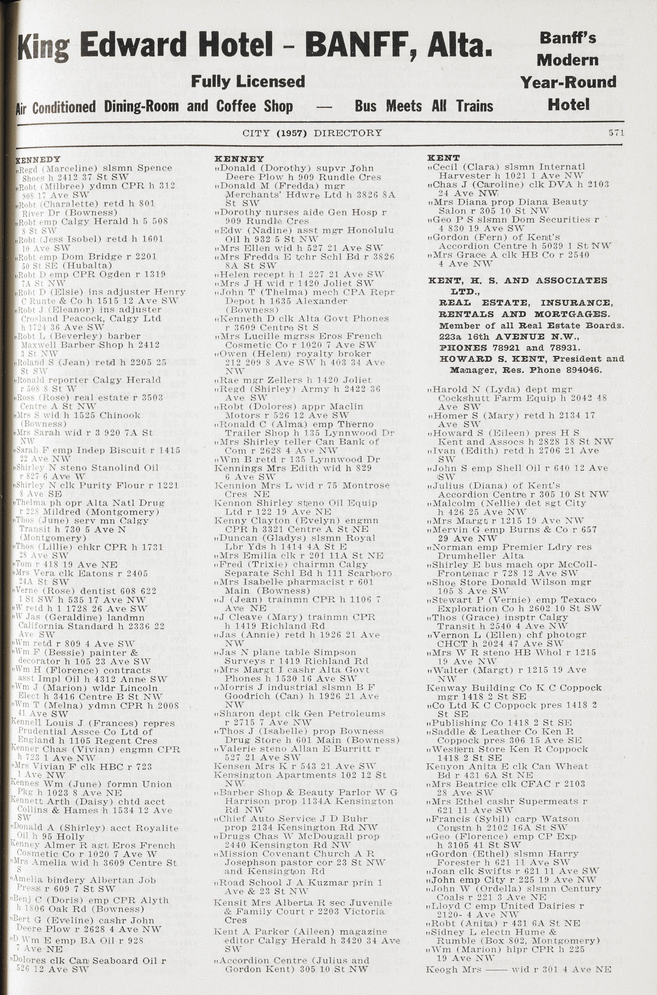 King Edward Hotel - BANFF, Alta.
Fully Licensed
Air Conditioned Dining-Room and Coffee Shop — Bus Meets All Trains
Banff's
Modern
Year-Round
Hotel
CITY (1957) DIRECTORY 571
KENNEDY
"Regd (Marceline) slsmn Spence
Shoes h 2412 37 St SW
"Robt (Milbree) ydmn CPR h 312
808 17 Ave SW
"Robt (Charalette) retd h 801
River Dr (Bowness)
"Robt emp Calgy Herald h 5 508
8 St SW
"Robt (Jess Isobel) retd h 1601
10 Ave SW
"Robt emp Dom Bridge r 2201
50 St SE (Hubalta)
"Robt D emp CPR Ogden r 1319
7A St NW
"Robt D (Elsie) ins adjuster Henry
C Runte & Co h 1515 12 Ave SW
"Robt J (Eleanor) ins adjuster
Crosland Peacock, Calgy Ltd
h 1724 36 Ave SW
"Robt L (Beverley) barber
Maxwell Barber Shop h 2412
3 St NW
"Roland S (Jean) retd h 2205 25
St SW
"Ronald reporter Calgy Herald
r 508 8 St W
"Ross (Rose) real estate r 3503
Centre A St NW
"Mrs S wid h 1525 Chinook
(Bowness)
"Mrs Sarah wid r 3 920 7A St
NW
"Sarah F emp Indep Biscuit r 1415
22 Ave NW
"Shirley N steno Stanolind Oil
r 827 6 Ave W
"Shirley N clk Purity Flour r 1221
8 Ave SE
"Thelma ph opr Alta Natl Drug
r 228 Mildred (Montgomery)
"Thos (June) serv mn Calgy
Transit h 730 5 Ave N
(Montgomery)
"Thos (Lillie) chkr CPR h 1731
28 Ave SW
"Tom r 418 19 Ave NE
"Mrs Vera clk Eatons r 2405
24A St SW
"Verne (Rose) dentist 608 622
1 St SW h 535 17 Ave NW
"W retd h 1 1728 26 Ave SW
"W Jas (Geraldine) landmn
California Standard h 2336 22
Ave SW
"Wm retd r 809 4 Ave SW
"Wm F (Bessie) painter &
decorator h 105 23 Ave SW
"Wm H (Florence) contracts
asst Impl Oil h 4312 Anne SW
"Wm J (Marion) wldr Lincoln
Elect h 3416 Centre B St NW
"Wm T (Melna) ydmn CPR h 2008
41 Ave SW
Kennell Louis J (Frances) repres
Prudential Assce Co Ltd of
England h 1105 Regent Cres
Kenner Chas (Vivian) engmn CPR
h 723 1 Ave NW
"Mrs Vivian F clk HBC r 723
1 Ave NW
Kennes Wm (June) formn Union
Pkg h 1023 8 Ave NE
Kennett Arth (Daisy) chtd acct
Collins & Hames h 1534 12 Ave
SW
"Donald A (Shirley) acct Royalite
Oil h 95 Holly
Kenney Almer R agt Eros French
Cosmetic Co r 1020 7 Ave W
"Mrs Amelia wid h 3609 Centre St
S
"Amelia bindery Albertan Job
Press r 609 7 St SW
"Benj C (Doris) emp CPR Alyth
h 1806 Oak Rd (Bowness)
"Bert G (Eveline) cashr John
Deere Plow r 2628 4 Ave NW
"D Wm E emp BA Oil r 928
7 Ave NE
"Dolores clk Can Seaboard Oil r
526 12 Ave SW
KENNEY
"Donald (Dorothy) supvr John
Deere Plow h 909 Rundle Cres
"Donald M (Fredda) mgr
Merchants' Hdwre Ltd h 3826 8A
St SW
"Dorothy nurses aide Gen Hosp r
909 Rundle Cres
"Edw (Nadine) asst mgr Honolulu
Oil h 932 5 St NW
"Mrs Ellen wid h 527 21 Ave SW
"Mrs Fredda E tchr Schl Bd r 3826
8A St SW
"Helen recept h 1 227 21 Ave SW
"Mrs J H wid r 1420 Joliet SW
"John T (Thelma) mech CPA Repr
Depot h 1635 Alexander
(Bowness)
"Kenneth D clk Alta Govt Phones
r 3609 Centre St S
"Mrs Lucille mgrss Eros French
Cosmetic Co r 1020 7 Ave W
"Owen (Helen) royalty broker
212 209 8 Ave SW h 403 34 Ave
NW
"Rae mgr Zellers h 1420 Joliet
"Regd (Shirley) Army h 2422 36
Ave SW
"Robt (Dolores) appr Maclin
Motors r 526 12 Ave SW
"Ronald C (Alma) emp Therno
Trailer Shop h 135 Lynnwood Dr
"Mrs Shirley teller Can Bank of
Com r 2628 4 Ave NW
"Wm B retd r 135 Lynnwood Dr
Kennings Mrs Edith wid h 829
6 Ave SW
Kennion Mrs L wid r 75 Montrose
Cres NE
Kennon Shirley steno Oil Equip
Ltd r 122 19 Ave NE
Kenny Clayton (Evelyn) engmn
CPR h 3321 Centre A St NE
"Duncan (Gladys) slsmn Royal
Lbr Yds h 1414 4A St E
"Mrs Emilia clk r 201 11A St NE
"Fred (Trixie) chairmn Calgy
Separate Schl Bd h 111 Scarboro
"Mrs Isabelle pharmacist r 601
Main (Bowness)
"J (Jean) trainmn CPR h 1106 7
Ave NE
"J Cleave (Mary) trainmn CPR
h 1419 Richland Rd
"Jas (Annie) retd h 1926 21 Ave
NW
"Jas N plane table Simpson
Surveys r 1419 Richland Rd
"Mrs Margt I cashr Alta Govt
Phones h 1530 16 Ave SW
"Morris J industrial slsmn B F
Goodrich (Can) h 1926 21 Ave
NW
"Sharon dept clk Gen Petroleums
r 2715 7 Ave NW
"Thos J (Isabelle) prop Bowness
Drug Store h 601 Main (Bowness)
"Valerie steno Allan E Burritt r
527 21 Ave SW
Kensen Mrs K r 543 21 Ave SW
Kensington Apartments 102 12 St
NW
"Barber Shop & Beauty Parlor W G
Harrison prop 1134A Kensington
Rd NW
"Chief Auto Service J D Buhr
prop 2134 Kensington Rd NW
"Drugs Chas W McDougall prop
2440 Kensington Rd NW
"Mission Covenant Church A R
Josephson pastor cor 23 St NW
and Kensington Rd
"Road School J A Kuzmar prin 1
Ave & 23 St NW
Kensit Mrs Alberta R sec Juvenile
& Family Court r 2203 Victoria
Cres
Kent A Parker (Aileen) magazine
editor Calgy Herald h 3420 34 Ave
SW
"Accordion Centre (Julius and
Gordon Kent) 305 10 St NW
KENT
"Cecil (Clara) slsmn Internatl
Harvester h 1021 1 Ave NW
"Chas J (Caroline) clk DVA h 2103
24 Ave NW
"Mrs Diana prop Diana Beauty
Salon r 305 10 St NW
"Geo P S slsmn Dom Securities r
4 830 19 Ave SW
"Gordon (Fern) of Kent's
Accordion Centre h 5039 1 St NW
"Mrs Grace A clk HB Co r 2540
4 Ave NW
KENT, H. S. AND ASSOCIATES
LTD.,
REAL ESTATE, INSURANCE,
RENTALS AND MORTGAGES.
Member of all Real Estate Boards.
223a 16th AVENUE N.W.,
PHONES 78921 and 78931.
HOWARD S. KENT, President and
Manager, Res. Phone 894046.
"Harold N (Lyda) dept mgr
Cockshutt Farm Equip h 2042 48
Ave SW
"Homer S (Mary) retd h 2134 17
Ave SW
"Howard S (Eileen) pres H S
Kent and Assocs h 2828 18 St NW
"Ivan (Edith) retd h 2706 21 Ave
SW
"John S emp Shell Oil r 640 12 Ave
SW
"Julius (Diana) of Kent's
Accordion Centre r 305 10 St NW
"Malcolm (Nellie) det sgt City
h 426 25 Ave NW
"Mrs Margt r 1215 19 Ave NW
"Mervin G emp Burns & Co r 657
29 Ave NW
"Norman emp Premier Ldry res
Drumheller Alta
"Shirley E bus mach opr McColl-
Frontenac r 728 12 Ave SW
"Shoe Store Donald Wilson mgr
105 8 Ave SW
"Stewart P (Vernie) emp Texaco
Exploration Co h 2602 10 St SW
"Thos (Grace) insptr Calgy
Transit h 2540 4 Ave NW
"Vernon L (Ellen) chf photogr
CHCT h 2024 47 Ave SW
"Mrs W R steno HB Whol r 1215
19 Ave NW
"Walter (Margt) r 1215 19 Ave
NW
Kenway Building Co K C Coppock
mgr 1418 2 St SE
"Co Ltd K C Coppock pres 1418 2
St SE
"Publishing Co 1418 2 St SE
"Saddle & Leather Co Ken R
Coppock pres 306 15 Ave SE
"Western Store Ken R Coppock
1418 2 St SE
Kenyon Anita E clk Can Wheat
Bd r 431 6A St NE
"Mrs Beatrice clk CFAC r 2103
28 Ave SW
"Mrs Ethel cashr Supermeats r
621 11 Ave SW
"Francis (Sybil) carp Watson
Constn h 2102 16A St SW
"Geo (Florence) emp CP Exp
h 3105 41 St SW
"Gordon (Ethel) slsmn Harry
Forester h 621 11 Ave SW
"Joan clk Swifts r 621 11 Ave SW
"John emp City r 225 19 Ave NW
"John W (Ordella) slsmn Century
Coals r 221 3 Ave NE
"Lloyd C emp United Dairies r
2120- 4 Ave NW
"Robt (Anita) r 431 6A St NE
"Sidney L electn Hume &
Rumble (Box 802, Montgomery)
"Wm (Marion) hlpr CPR h 225
19 Ave NW
Keogh Mrs —— wid r 301 4 Ave NE